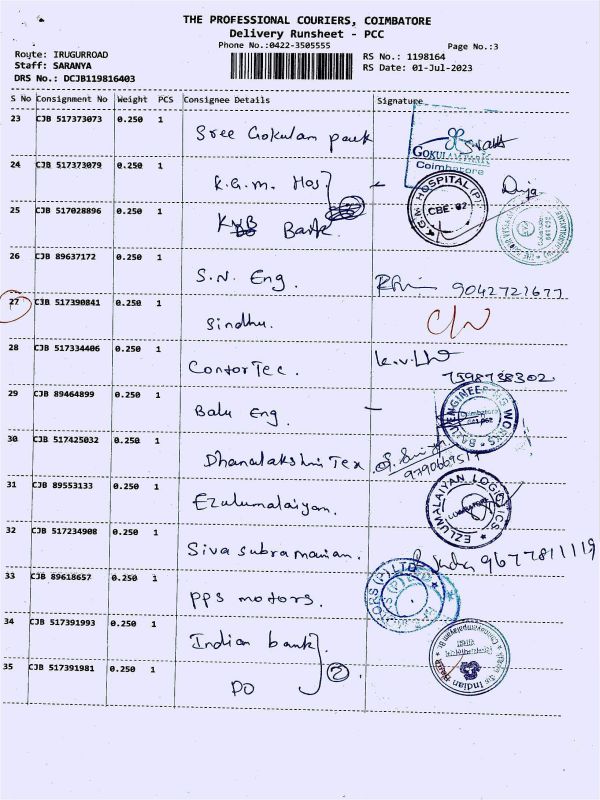 THE PROFESSIONAL COURIERS, COIMBATORE
Delivery Runsheet - PCC
Phone No.:0422-3505555 Page No.:3
Route: IRUGURROAD RS No.: 1198164
Staff: SARANYA RS Date: 01-Jul-2023
DRS No.: DCJB119816403
S No Consignment No Weight PCS Consignee Details Signature
23 CJB 517373073 0.250 1 Sree Gokulam park
GOKULAM PARK
Coimbatore
24 CJB 517373079 0.250 1 K.G.M. Hos
K.G.M. HOSPITAL (P)
CBE-62
25 CJB 517028896 0.250 1 KVB Bank
26 CJB 89637172 0.250 1 S.N. Eng. 9042721677
27 CJB 517390841 0.250 1 Sindhu.
28 CJB 517334406 0.250 1 ContorTec. 7598738302
29 CJB 89464899 0.250 1 Balu Eng. BALU ENGINEERING WORKS
Coimbatore
30 CJB 517425032 0.250 1 Dhanalakshmi Tex
31 CJB 89553133 0.250 1 Ezulumalaiyan. EZLUMALAIYAN LOGISTICS
32 CJB 517234908 0.250 1 Siva subramanian. 9677811119
33 CJB 89618657 0.250 1 PPS motors.
34 CJB 517391993 0.250 1 Indian bank
Indian Bank
35 CJB 517391981 0.250 1 DO 2